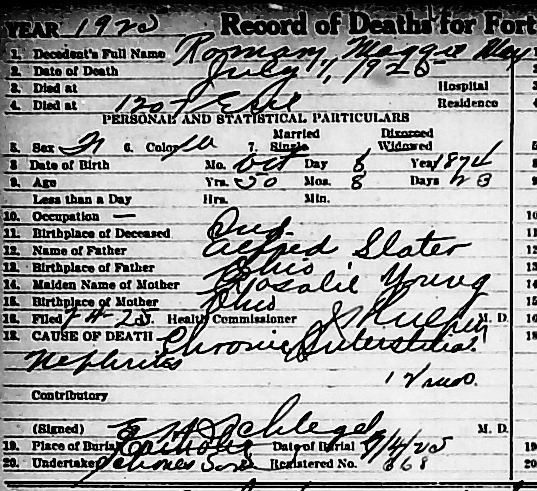 YEAR 1925 Record of Deaths for Fort
1. Decedent's Full Name Maggie May
2. Date of Death July 1, 1925
3. Died at Hospital
4. Died at 1207 Residence
PERSONAL AND STATISTICAL PARTICULARS
5. Sex F 6. Color W 7. Married Single Divorced Widowed
8 Date of Birth Mo. Oct Day 8 Year 1874
9. Age Yrs. 50 Mos. 8 Days 23
Less than a Day Hrs. Min.
10. Occupation —
11. Birthplace of Deceased Ind.
12. Name of Father Alfred Slater
13. Birthplace of Father Ohio
14. Maiden Name of Mother Rosalie Young
15. Birthplace of Mother Ohio
16. Filed 7-4-25 Health Commissioner M. D.
18. CAUSE OF DEATH Chronic Interstitial
Nephritis
Contributory
(Signed) Schlegel M. D.
19. Place of Burial Catholic Date of Burial 7/4/25
20. Undertaker Registered No. 668